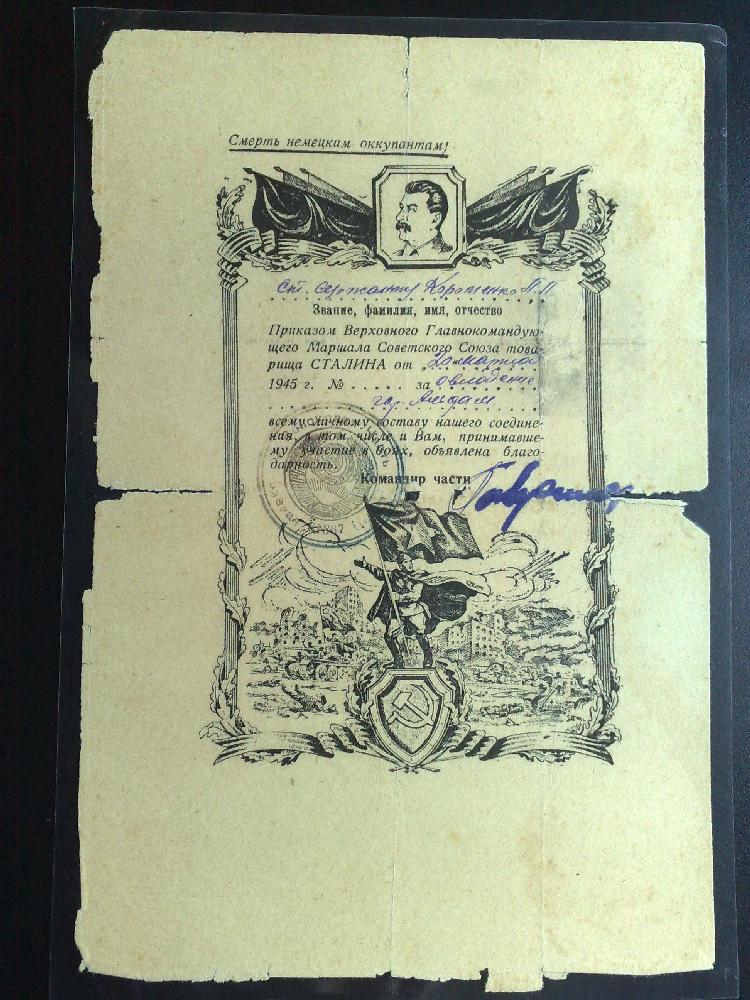 Смерть немецким оккупантам!
Ст. сержанту Короженко П.П.
Звание, фамилия, имя, отчество
Приказом Верховного Главнокомандую-
щего Маршала Советского Союза това-
рища СТАЛИНА от „20 марта
1945 г. № ..... за овладение
гор. Альдам
всему личному составу нашего соедине-
ния, в том числе и Вам, принимавше-
му участие в боях, объявлена благо-
дарность.
Командир части